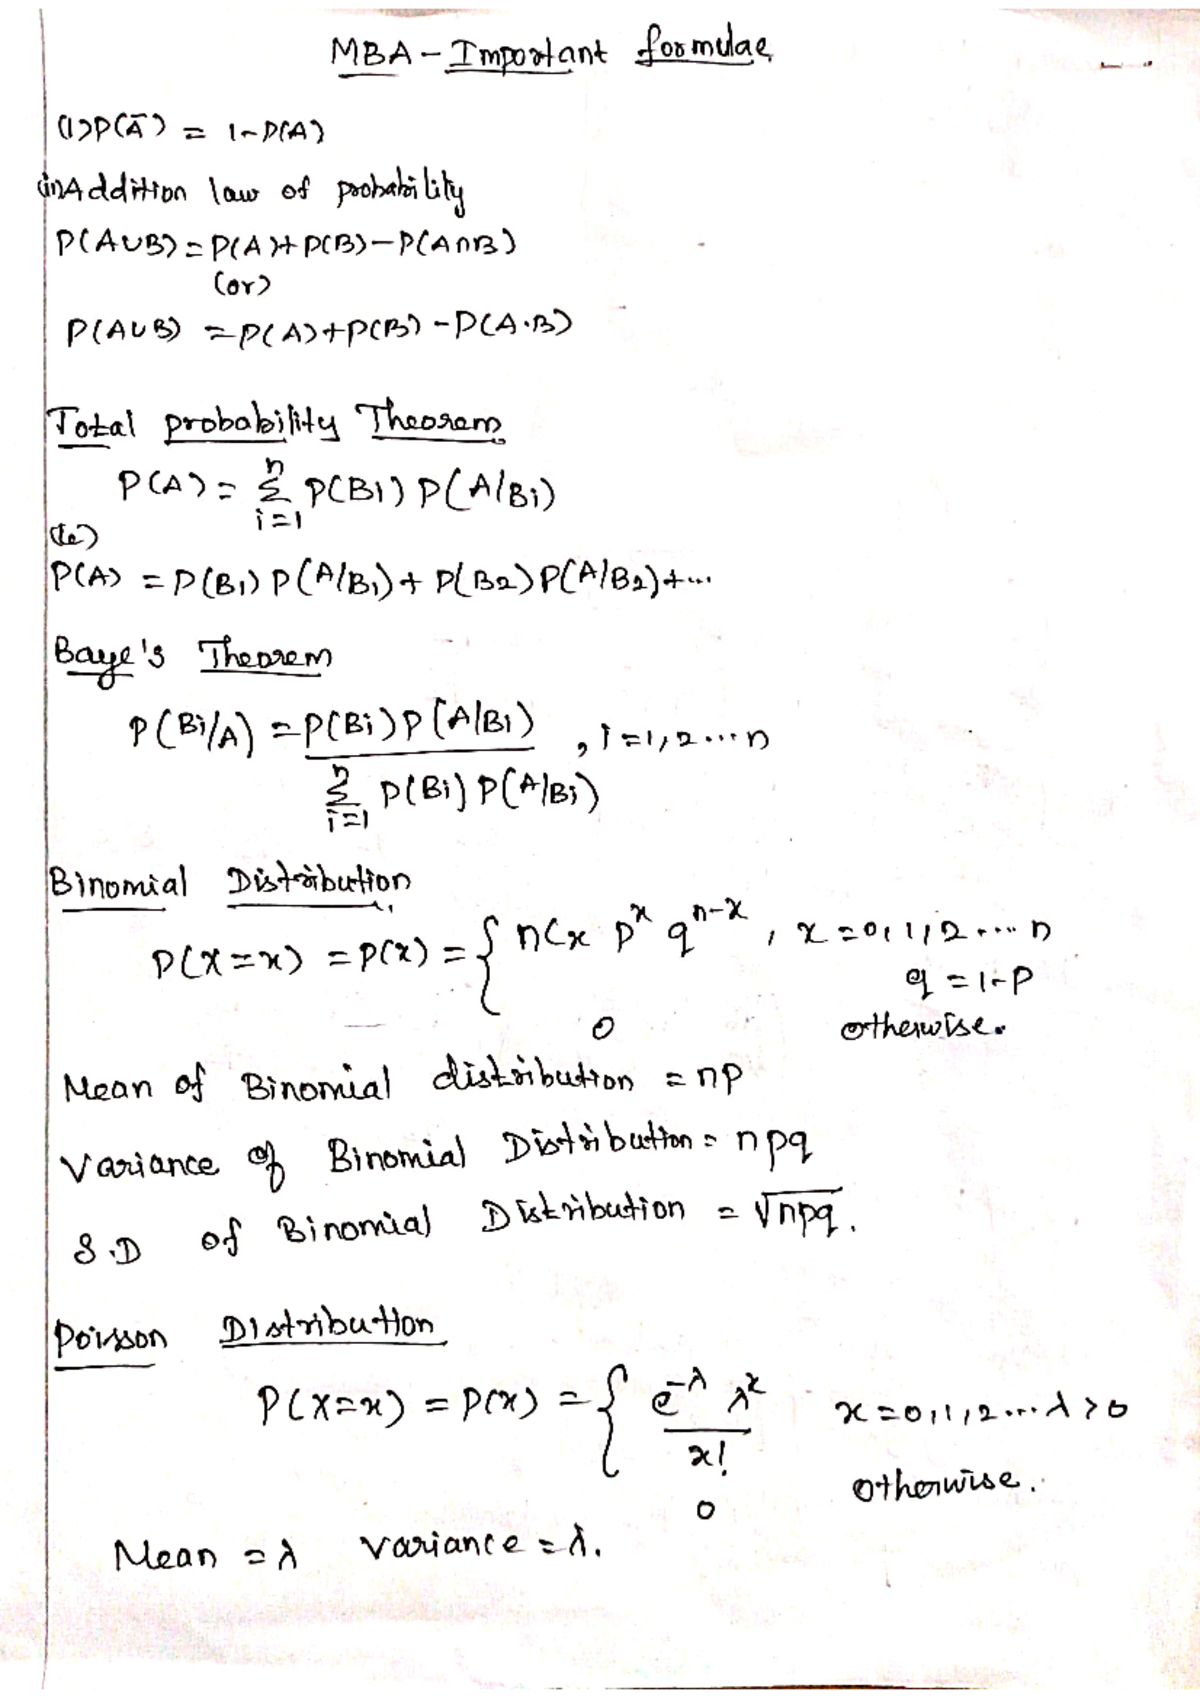 MBA - Important formulae
(1) P(Ā) = 1 - P(A)
(ii) Addition law of probability
P(A∪B) = P(A) + P(B) - P(A∩B)
(or)
P(A∪B) = P(A) + P(B) - P(A·B)
Total probability Theorem
P(A) = Σ_{i=1}^{n} P(Bi) P(A/Bi)
(ie)
P(A) = P(B1) P(A/B1) + P(B2) P(A/B2) + ...
Baye's Theorem
P(Bi/A) = P(Bi) P(A/Bi) / Σ_{i=1}^{n} P(Bi) P(A/Bi) , i = 1, 2 ... n
Binomial Distribution
P(X=x) = P(x) = { nCx p^x q^{n-x} , x = 0, 1, 2 .... n
q = 1 - p
0 otherwise.
Mean of Binomial distribution = np
Variance of Binomial Distribution = npq
S.D of Binomial Distribution = √npq.
Poisson Distribution
P(X=x) = P(x) = { e^{-λ} λ^x / x! x = 0, 1, 2 ... λ > 0
0 otherwise.
Mean = λ variance = λ.